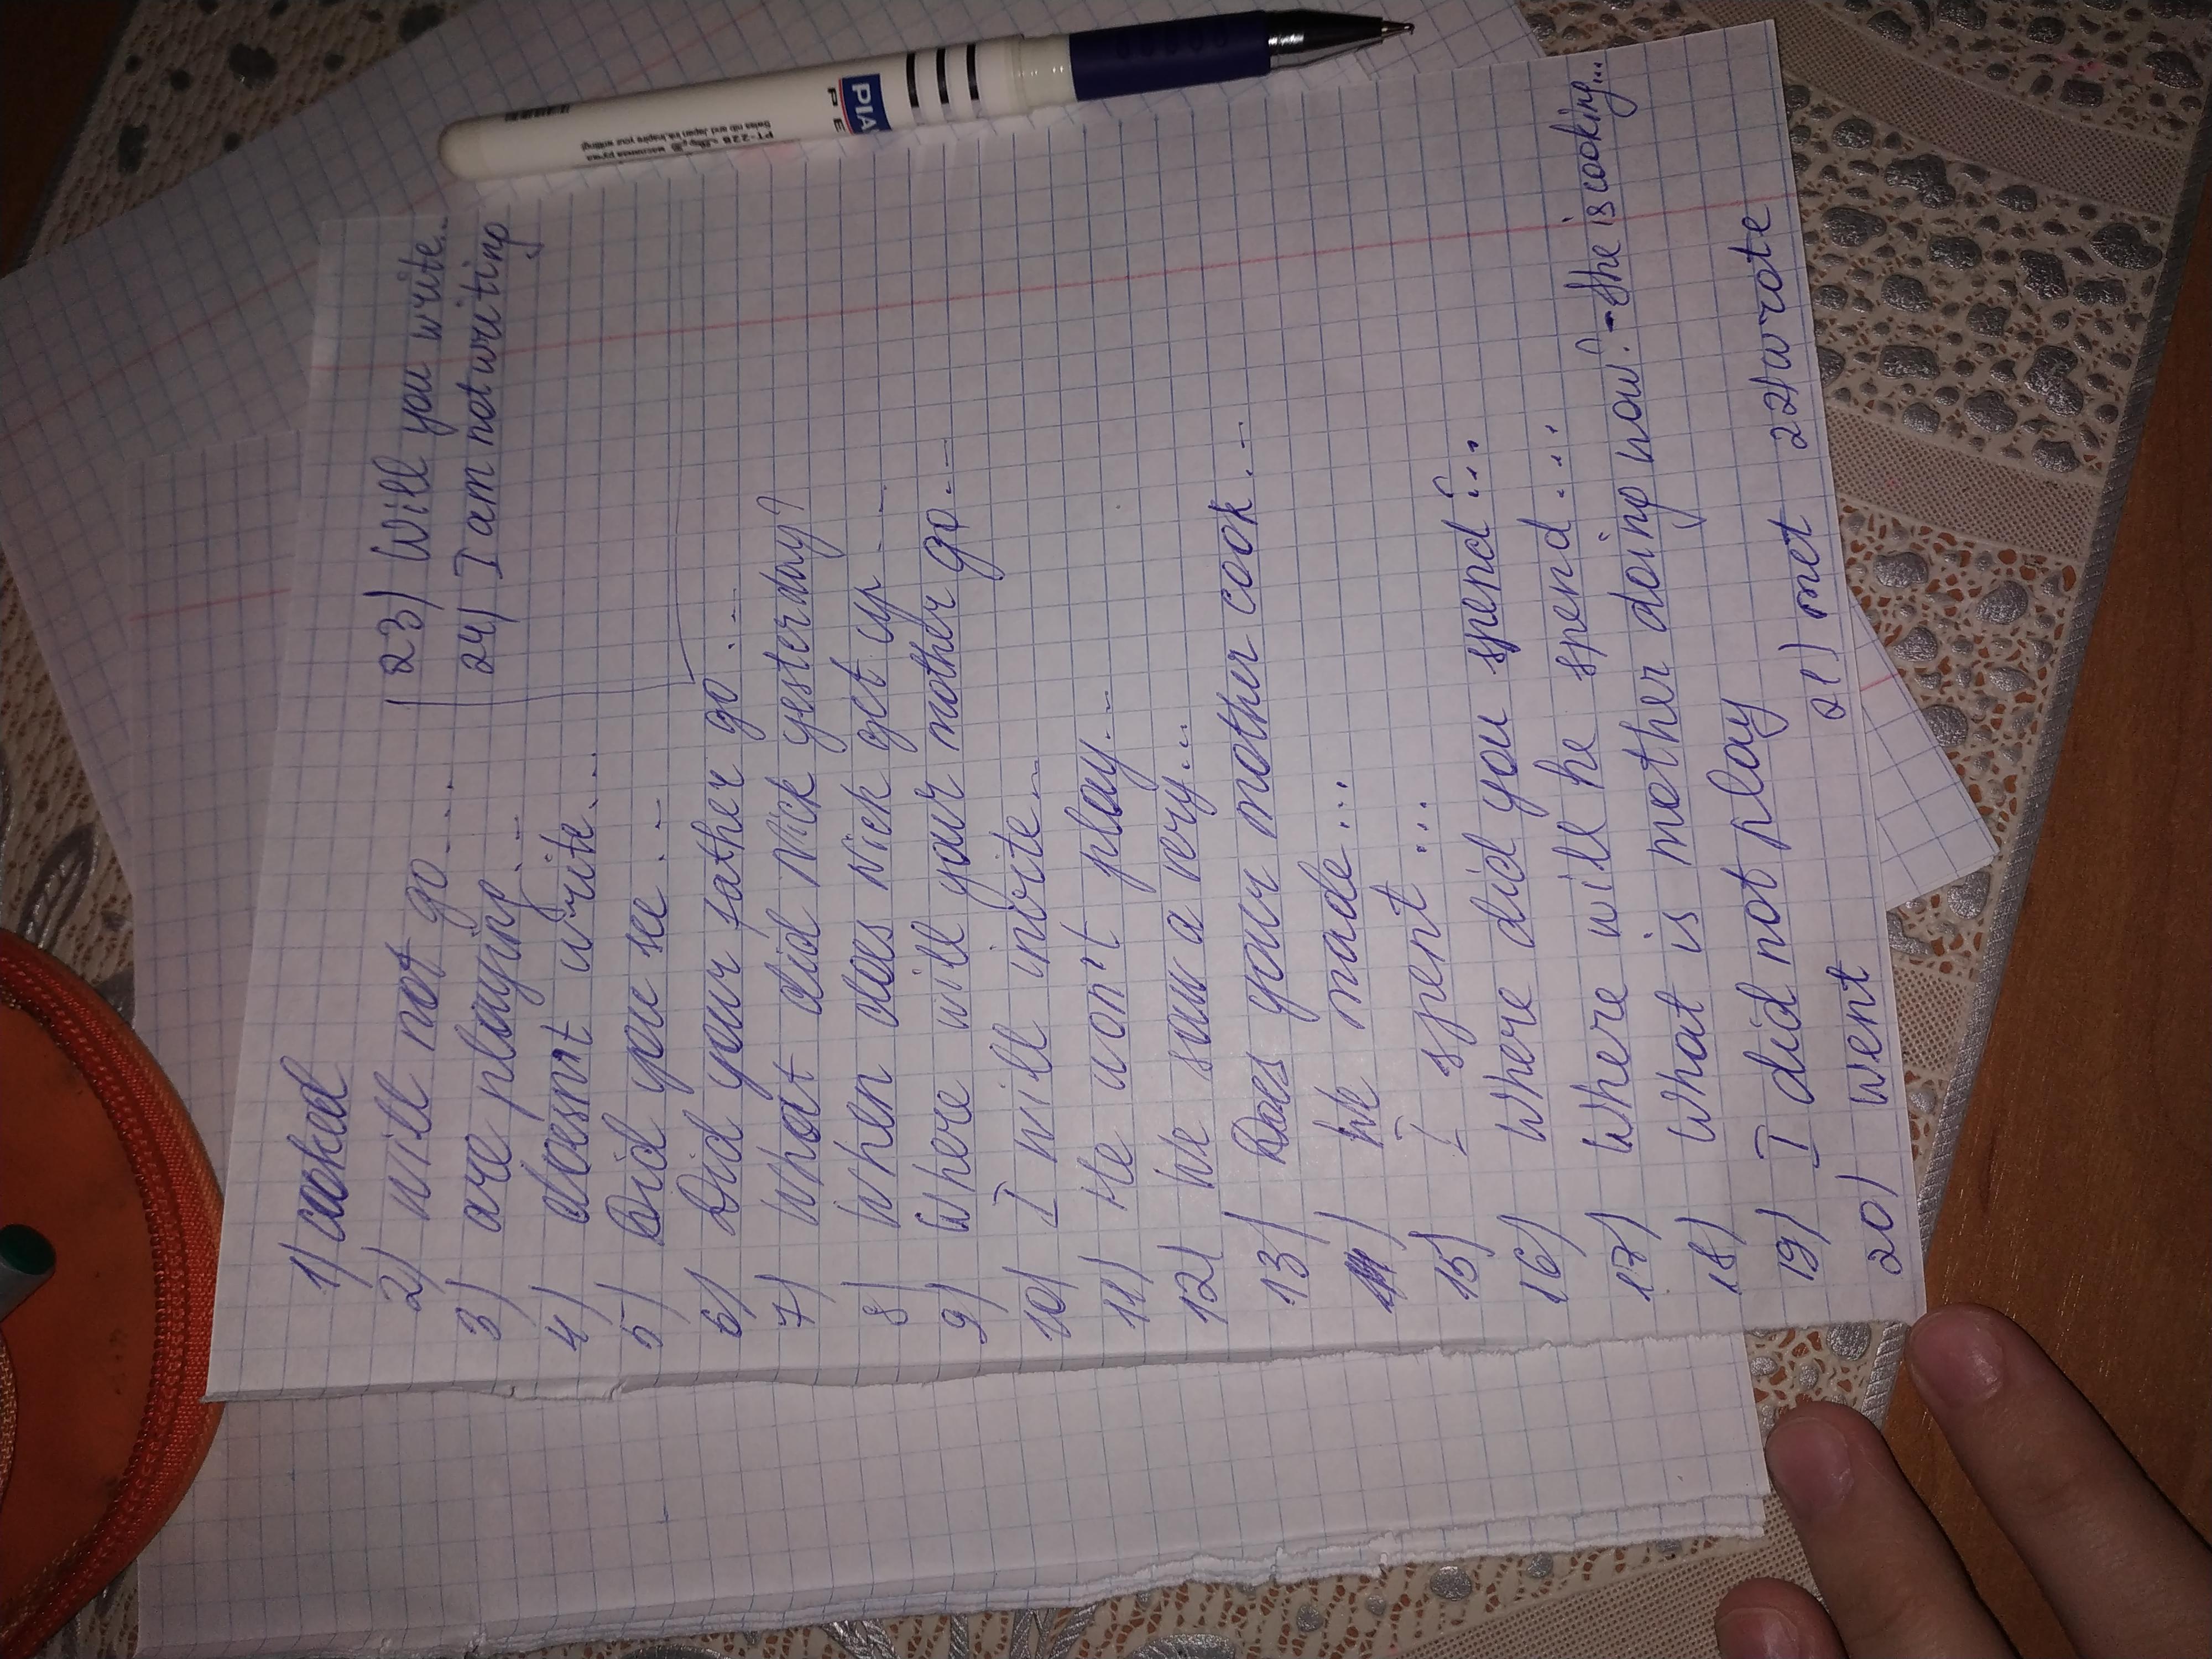 1) cooked
2) will not go...
3) are playing...
4) doesn't write...
5) Did you see...
6) Did your father go...
7) What did Nick yesterday?
8) When does Nick get up...
9) Where will your mother go...
10) I will invite...
11) He won't play...
12) We saw a very...
13) Does your mother cook...
We made...
15) I spent...
16) Where did you spend?...
17) Where will he spend...
18) What is mother doing now? - She is cooking...
19) I did not play
20) went 21) met 22) wrote
23) Will you write...
24) I am not writing
PIA
P E
PT-228
Swiss nib and Japan ink.Inspire your writing!